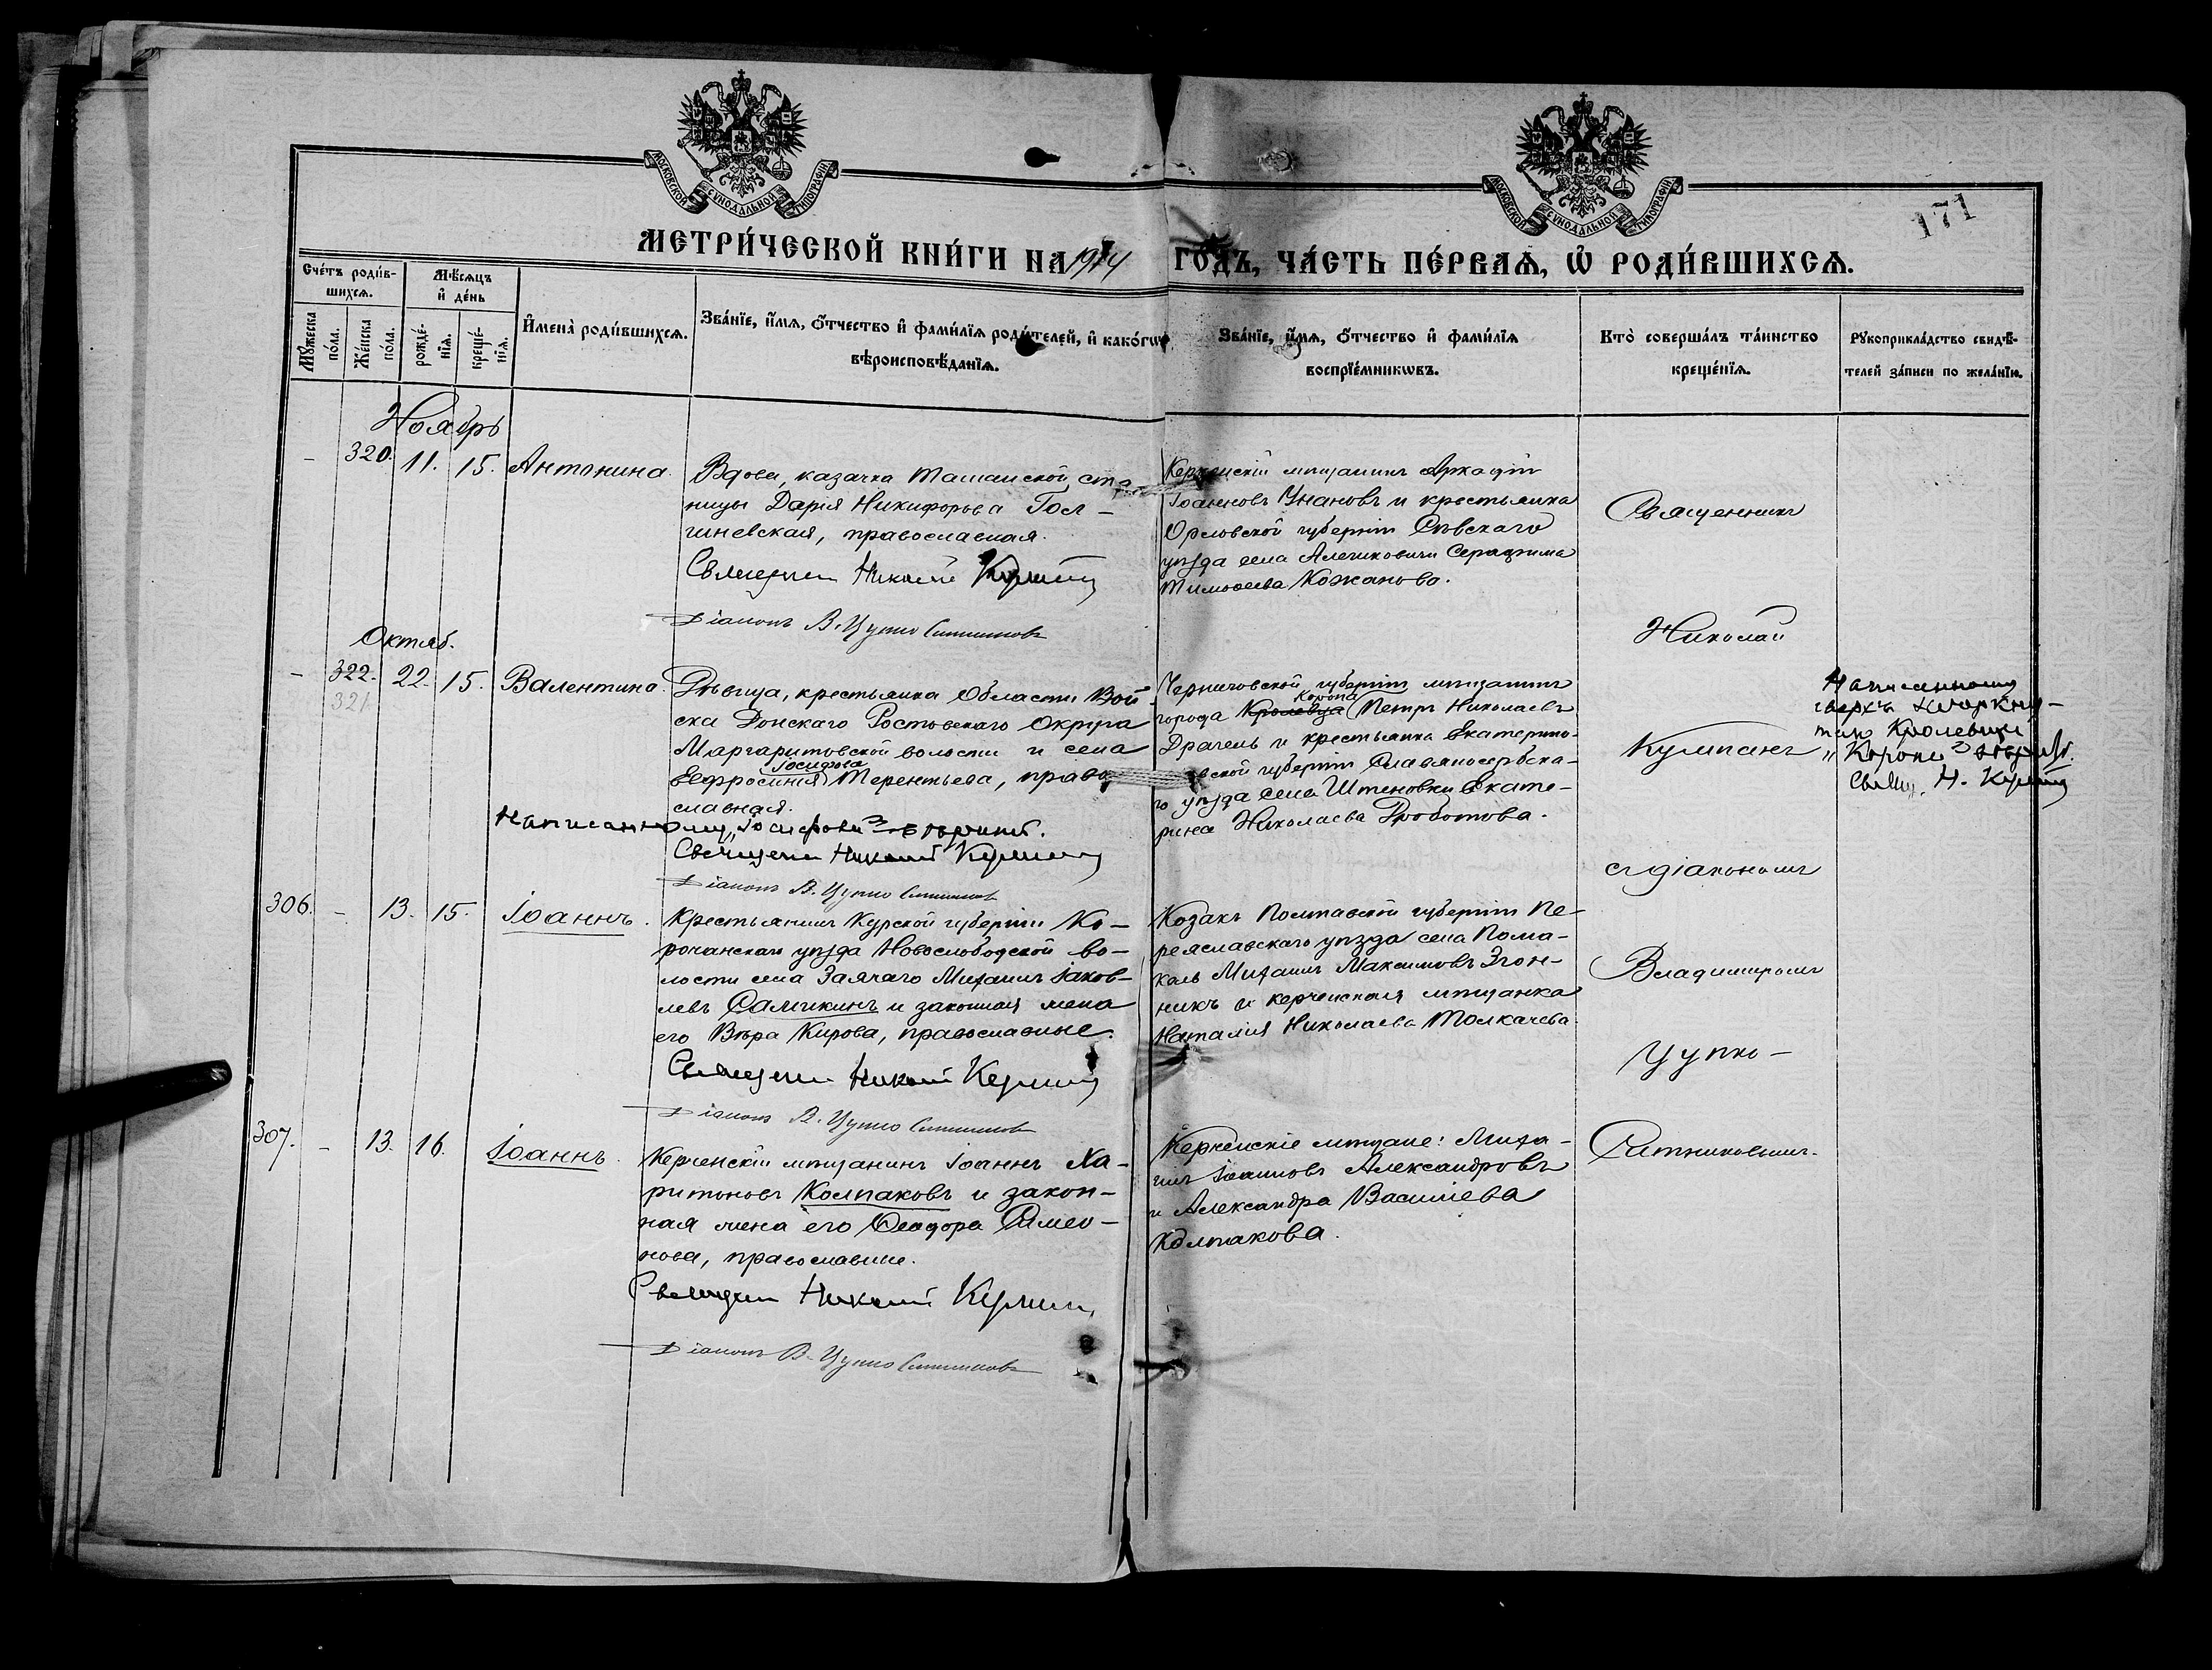 МОСКОВСКОЙ СѴНОДАЛЬНОЙ ТИПОГРАФІИ
МОСКОВСКОЙ СѴНОДАЛЬНОЙ ТИПОГРАФІИ
171
МЕТРИ́ЧЕСКОЙ КНИ́ГИ НА 1914 ГО́ДЪ, ЧА́СТЬ ПЕ́РВАѦ, Ѡ҆ РОДИ́ВШИХСѦ.
Сче́тъ роди́в-
шихсѧ.
Мѣ́сѧцъ
и҆ де́нь
Мꙋ́жеска
по́ла.
Же́нска
по́ла.
рожде́-
нїѧ.
креще́-
нїѧ.
И҆мена̀ роди́вшихсѧ.
Зва́нїе, и҆́мѧ, ѻ҆́тчество и҆ фами́лїѧ роди́телей, и҆ како́гѡ
вѣроисповѣ́данїѧ.
Зва́нїе, и҆́мѧ, ѻ҆́тчество и҆ фами́лїѧ
воспрїе́мникѡвъ.
Кто̀ соверша́лъ та́инство
креще́нїѧ.
Рꙋкоприкла́дство свидѣ́-
телей за́писи по жела́нїю.
Ноябрь
- 320. 11. 15. Антонина.
Вдова, казачка Таманской ста
ницы Дарія Никифорова Гол-
шневская, православная.
Священник Николай Кумпан
Діаконъ В. Цупко Ситников
Керченскій мѣщанинъ Аркадій
Іоанновъ Унановъ и крестьянка
Орловской губерніи Сѣвскаго
уѣзда села Алешковичи Серафима
Тимоѳеева Кожанова.
Священникъ
Николай
Кумпанъ
съ діакономъ
Владимиромъ
Цупко-
Ситниковымъ.
Октяб.
- 322. 22. 15. Валентина.
321
Дѣвица, крестьянка Области Вой-
ска Донскаго Ростовскаго Округа
Маргаритовской волости и села
Іосифова
Евфросинія Терентьева, право
славная.
Написанному „Іосифова" вѣрить.
Священник Николай Кумпан
Діаконъ В. Цупко Ситников
Черниговской губерніи мѣщанинъ
Коропа
города Кролевца Петръ Николаевъ
Драгель и крестьянка Екатерино-
вской губерніи Славяносербска-
го уѣзда села Штеповки Екате-
рина Николаева Дроботова.
Написанному
сверхъ зачеркну-
таго Кролевца
„Коропа" вѣрить.
Свящ. Н. Кумпан
306. - 13. 15. Іоаннъ.
Крестьянинъ Курской губерніи Ко-
рочанскаго уѣзда Новослободской во-
лости села Заячаго Михаилъ Іаков-
левъ Самикинъ и законная жена
его Вѣра Кирова, православные.
Священник Николай Кумпан
Діаконъ В. Цупко Ситников
Козакъ Полтавской губерніи Пе-
реяславскаго уѣзда села Пома-
кль Михаилъ Максимовъ Згон-
никъ и керченская мѣщанка
Наталія Николаева Толкачева.
307. - 13. 16. Іоаннъ.
Керченскій мѣщанинъ Іоаннъ Ха-
ритоновъ Колпаковъ и закон-
ная жена его Ѳеодора Симео-
нова, православные.
Священник Николай Кумпан
Діаконъ В. Цупко Ситников
Керченскіе мѣщане: Миха-
илъ Іоанновъ Александровъ
и Александра Васильева
Колпакова.